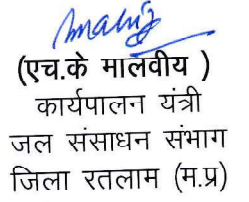 (एच.के मालवीय )
कार्यपालन यंत्री
जल संसाधन संभाग
जिला रतलाम (म.प्र)